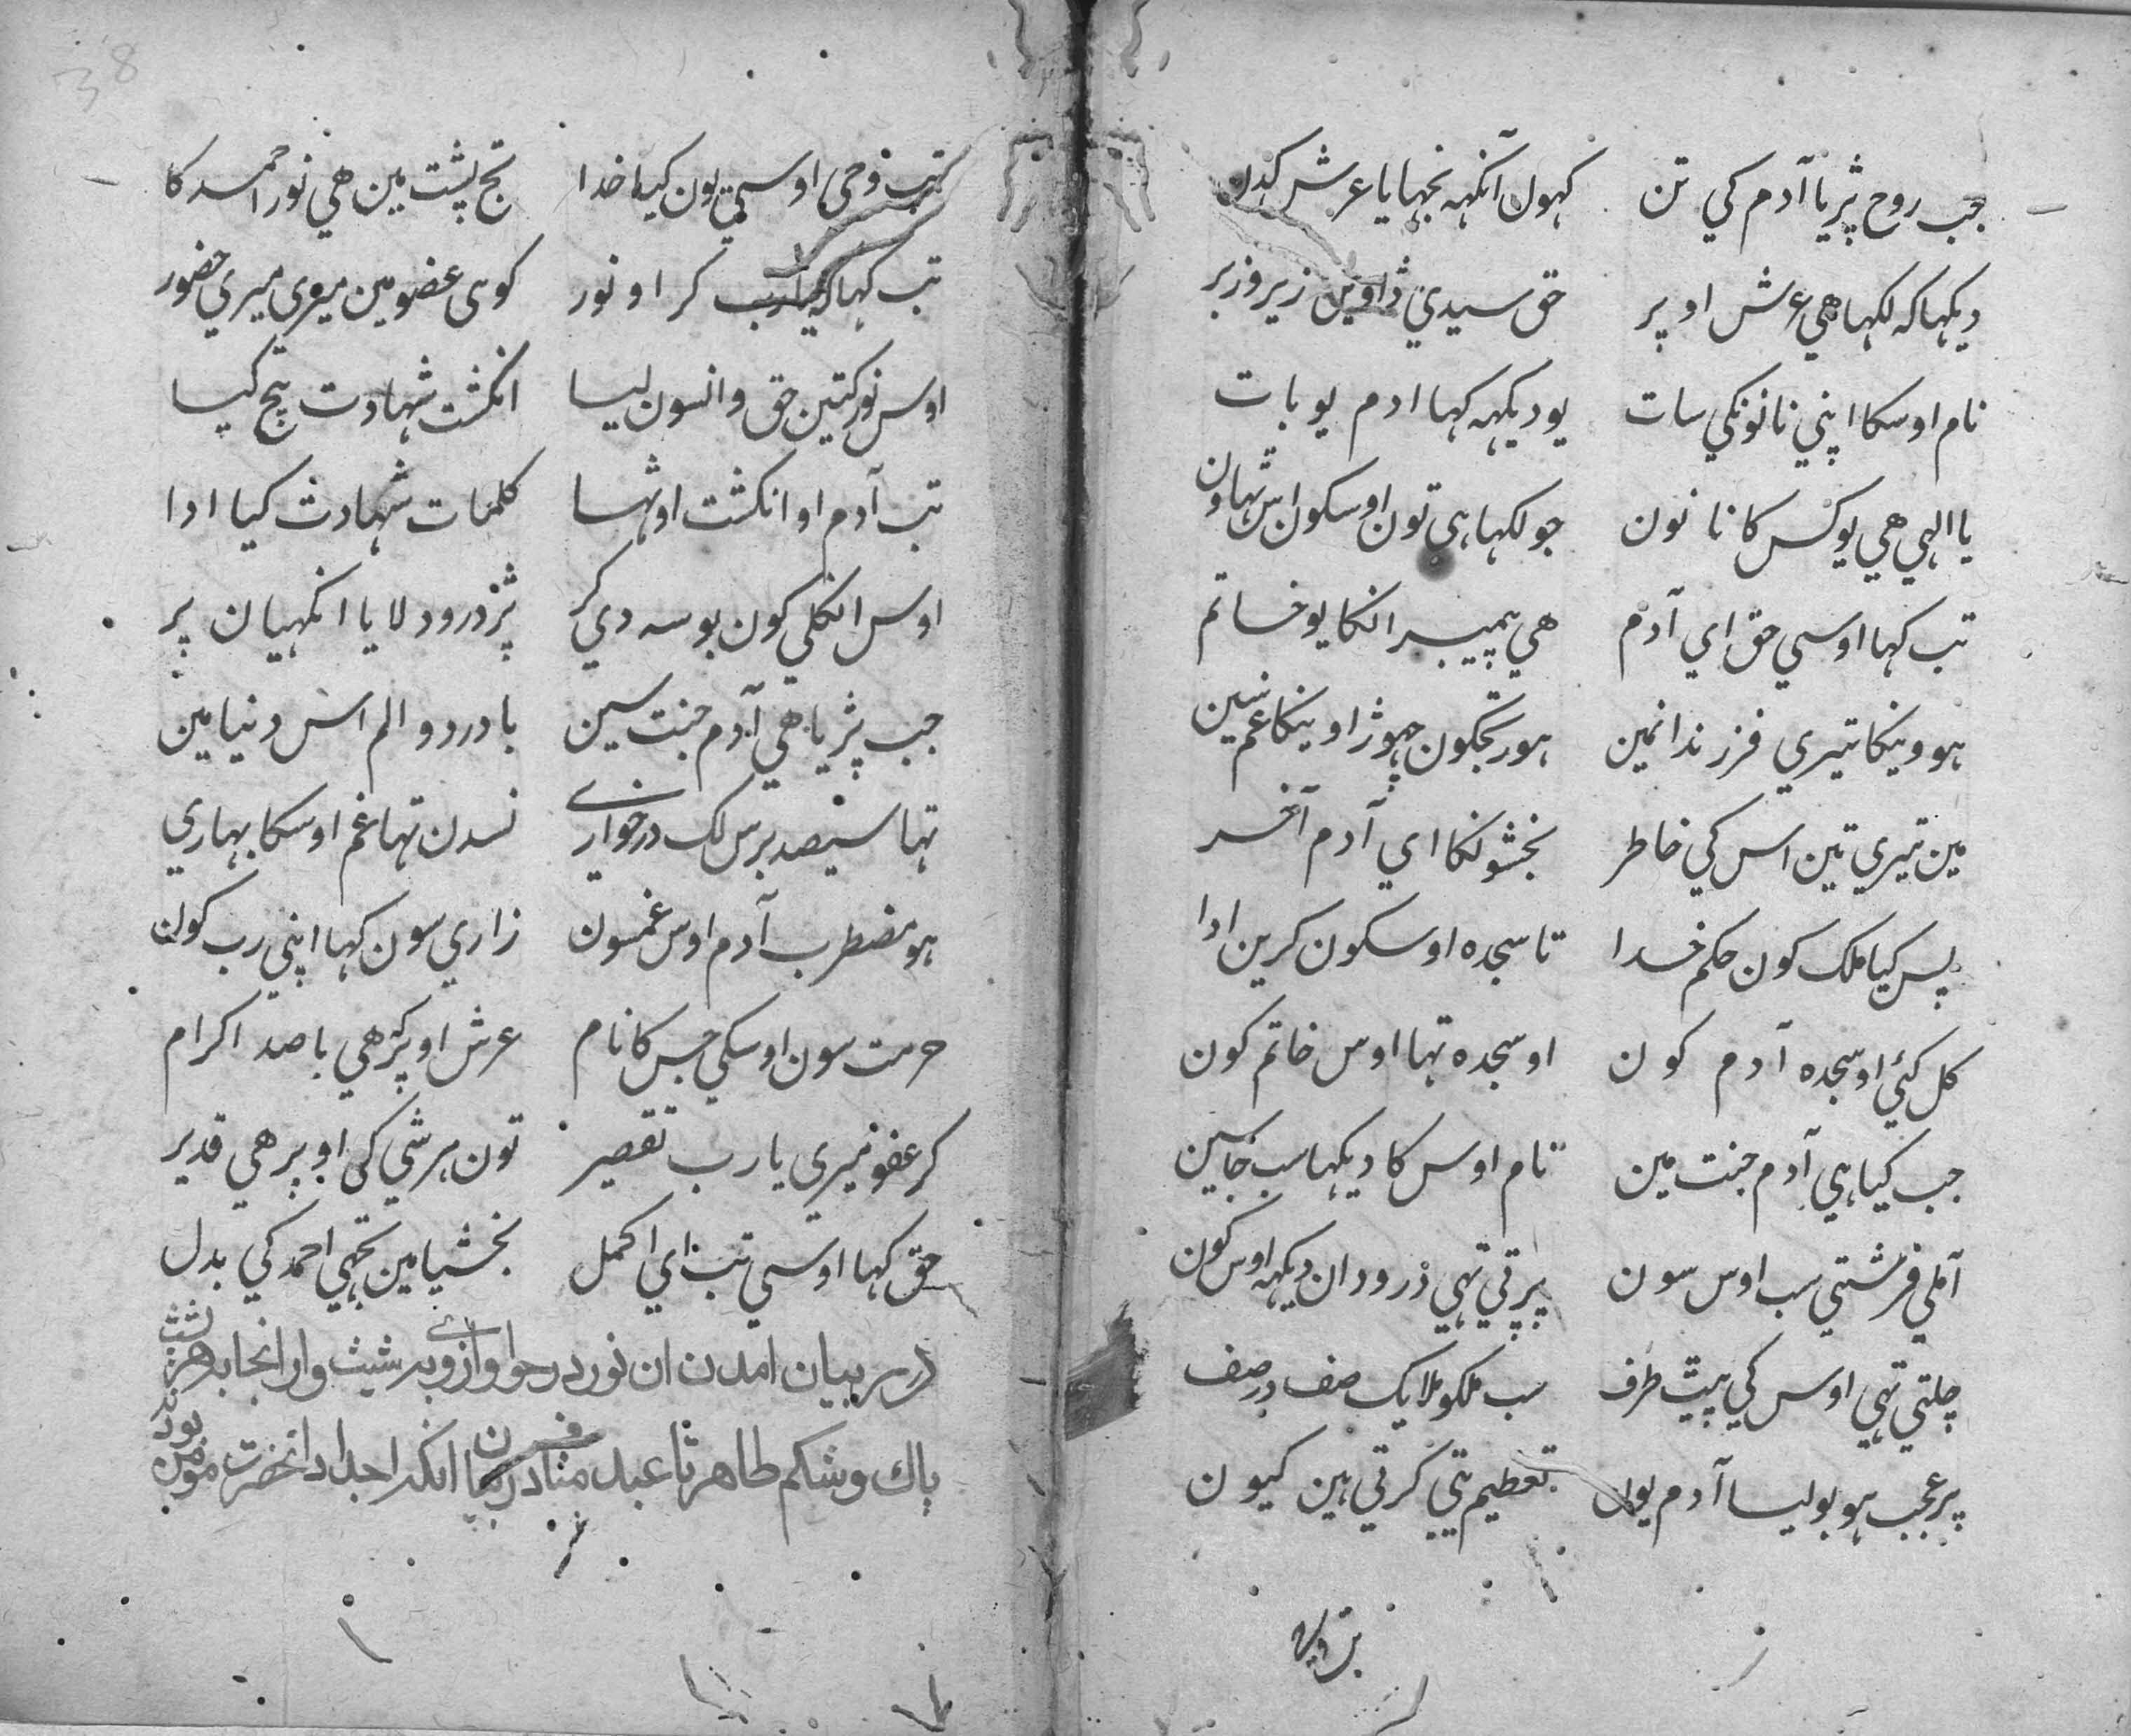 جب روح پڑیا آدم کي تن کہول آنکہہ نجہایا عرش کدن
دیکہا که لکہا هي عرش اوپر حق سیدي ڈاوین زیر و زبر
نام اوسکا اپني نانونکي سات یو دیکہه کہا ادم یو بات
یا الہي هي یو کس کا نانون جو لکہا ہی تون اوسکون اس ٹہاون
تب کہا اوسي حق اي آدم هي پیمبر انکا یو خاتم
ہووینکا تیري فرزندا نمین ہور تجکون چہوڑاوینکا غم سین
مین تیري تین اس کي خاطر بخشونکا اي آدم آخر
پس کیا ملک کون حکم خدا تا سجده اوسکون کرین ادا
کل کئي او سجده آدم کون او سجده تہا اوس خاتم کون
جب کیا ہي آدم جنت مین نام اوس کا دیکہا سب جا سین
آملي فرشتي سب اوس سون پڑتي تہي درودان دیکہه اوس کون
چلتي تہي اوس کي پیٹ طرف سب ملکو ملایک صف در صف
پر عجب ہو بولیا آدم یون تعظیم یتي کرتي ہین کیون
تب وحی اوسي یون کیا خدا تج پشت مین هي نور احمد کا
تب کہا که یارب کر او نور کوی عضو مین میری میري حضور
اوس نور کتین حق وانسون لیا انکشت شہادت بیچ کیا
تب آدم او انکشت اوٹہا کلمات شہادت کیا ادا
اوس انکلي کون بوسه دي کر پڑ درود لایا انکہیان پر
جب پڑیا هي آدم جنت سین با درد و الم اس دنیا مین
تہا سیصد برس لک در خواري نسدن تہا غم اوسکا بہاري
ہو مضطرب آدم اوس غمسون زاري سون کہا اپني رب کون
حرمت سون اوسکي جس کا نام عرش اوپر هي با صد اکرام
کر عفو میری یارب تقصیر تون ہر شي کی اوپر هي قدیر
حق کہا اوسي تب اي اکمل بخشیا مین تجهي احمد کي بدل
در بیان امدن ان نور در حوا و از وبه شیث و از انجا بهر پشت
پاك و شکم طاهر تا عبد مناف انکه اجداد انحضرت مومن بودند